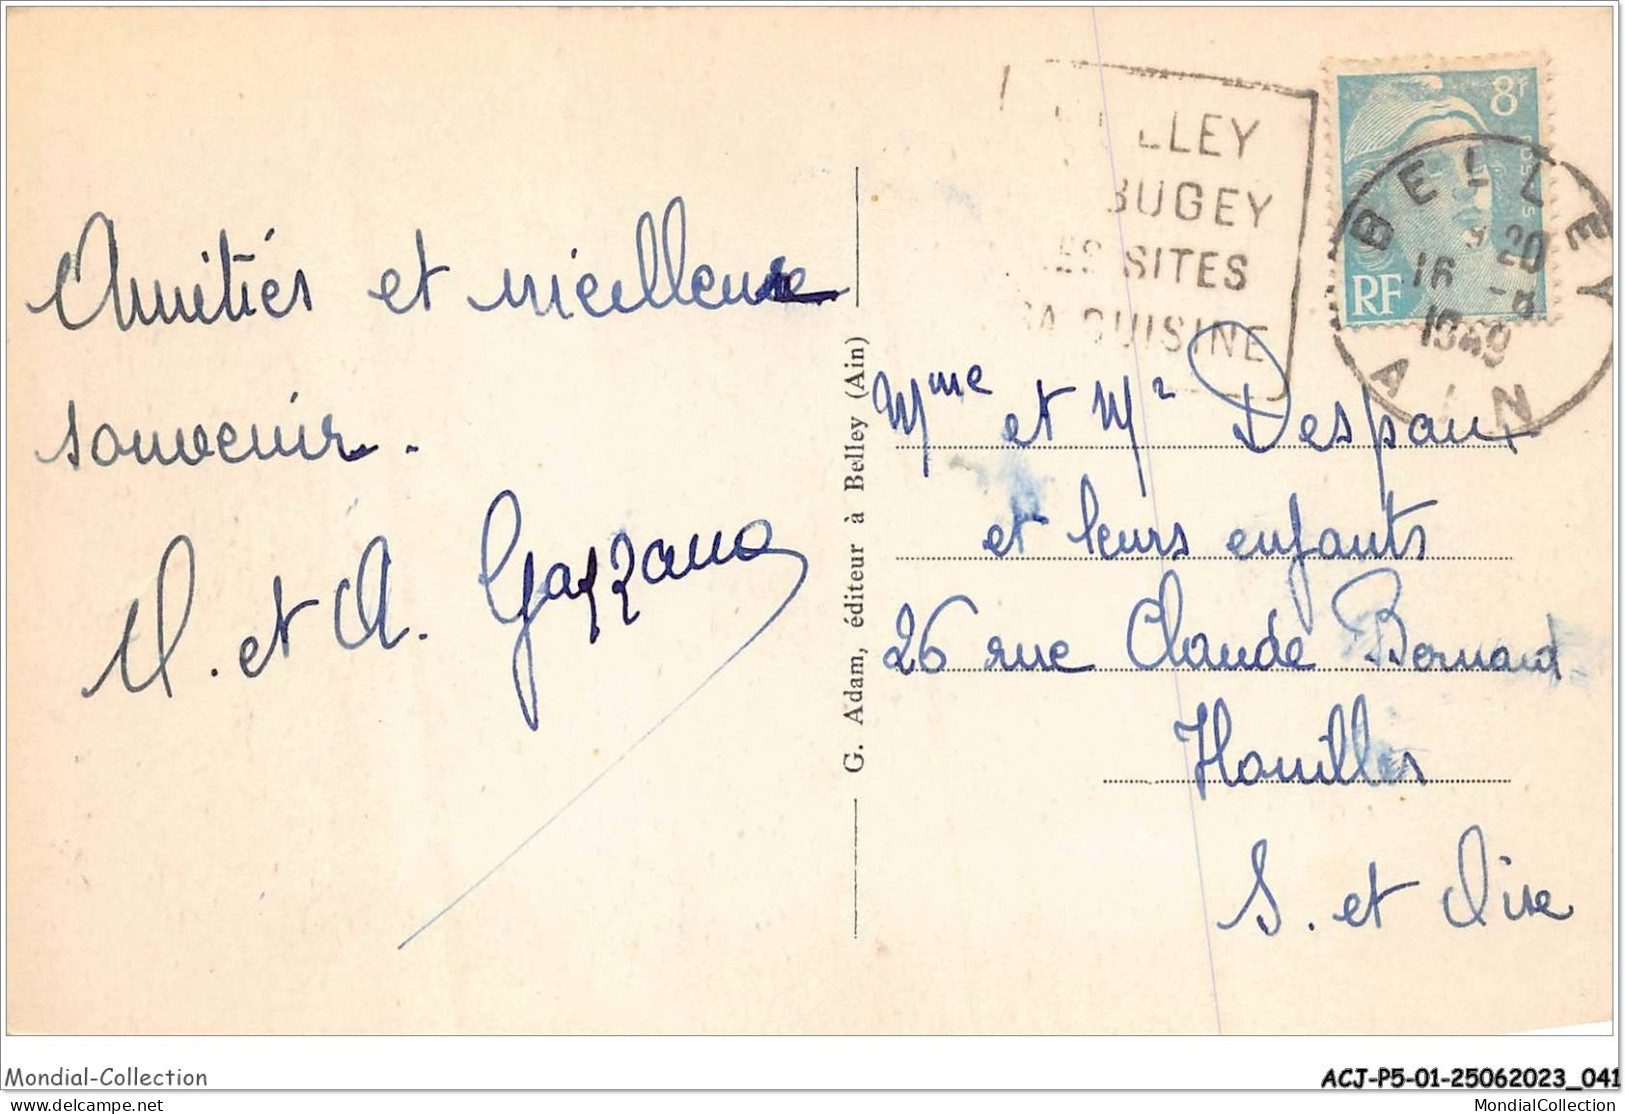 Amitiés et meilleure
souvenir.
et A. Gazzano
G. Adam, éditeur à Belley (Ain)
BUGEY
SITES
CUISINE
8f
RF
BELLEY
20
16 -8
1949
AIN
Mme et Mr Despaux
et leurs enfants
26 rue Claude Bernard
Houilles
S. et Oise
Mondial-Collection
ACJ-P5-01-25062023_041
delcampe.net
MondialCollection